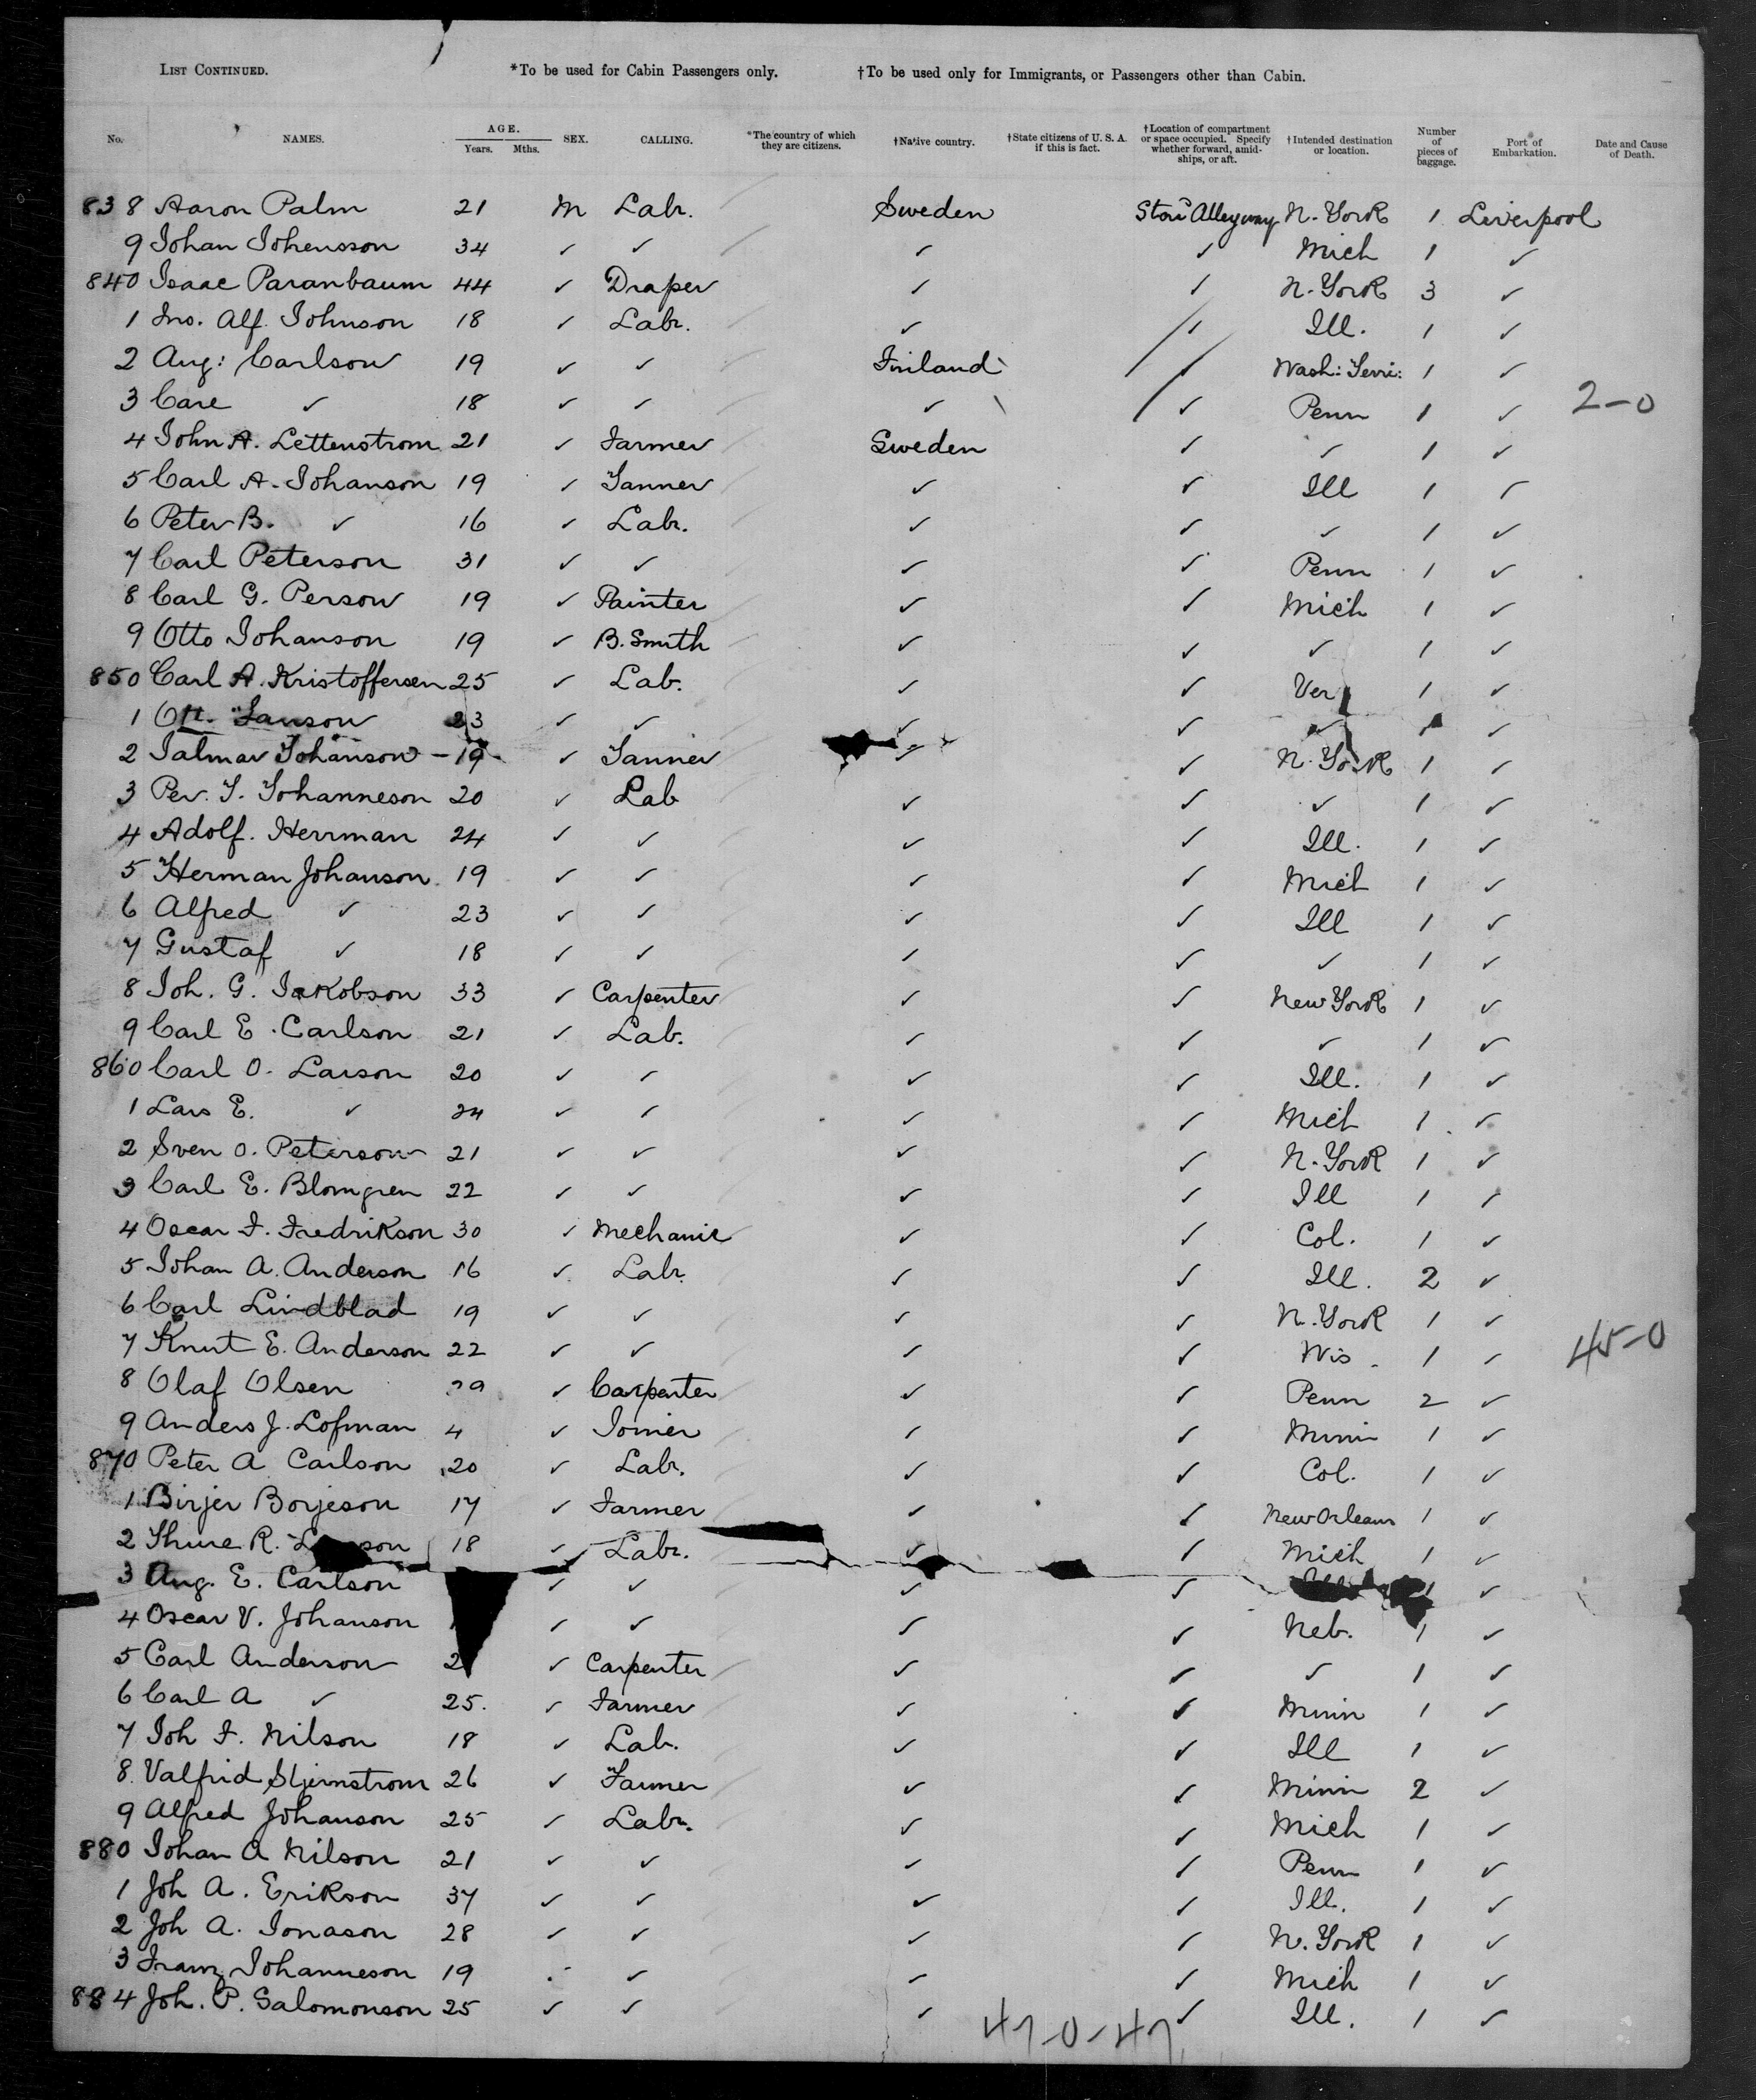 LIST CONTINUED. *To be used for Cabin Passengers only. †To be used only for Immigrants, or Passengers other than Cabin.
No. NAMES. AGE. Years. Mths. SEX. CALLING. *The country of which they are citizens. †Native country. †State citizens of U. S. A. if this is fact. †Location of compartment or space occupied. Specify whether forward, amidships, or aft. †Intended destination or location. Number of pieces of baggage. Port of Embarkation. Date and Cause of Death.
838 Aaron Palm 21 M Labr. Sweden Alleyway N. York 1 Liverpool
9 Johan Johensson 34 ✓ ✓ ✓ ✓ Mich 1 ✓
840 Isaac Paranbaum 44 ✓ Draper ✓ ✓ N. York 3 ✓
1 Jno. Alf. Johnson 18 ✓ Labr. ✓ ✓ Ill. 1 ✓
2 Aug: Carlson 19 ✓ ✓ Finland ✓ Wash: Terri: 1 ✓
3 Care ✓ 18 ✓ ✓ ✓ ✓ Penn 1 ✓ 2-0
4 John A. Lettenstrom 21 ✓ Farmer Sweden ✓ ✓ 1 ✓
5 Carl A. Johanson 19 ✓ Tanner ✓ ✓ Ill 1 ✓
6 Peter B. ✓ 16 ✓ Labr. ✓ ✓ ✓ 1 ✓
7 Carl Peterson 31 ✓ ✓ ✓ ✓ Penn 1 ✓
8 Carl G. Person 19 ✓ Painter ✓ ✓ Mich 1 ✓
9 Otto Johanson 19 ✓ B. Smith ✓ ✓ ✓ 1 ✓
850 Carl A. Kristoffersen 25 ✓ Lab. ✓ ✓ Ver 1 ✓
1 23 ✓ ✓ ✓ ✓ ✓ ✓
2 Ialmar Johanson - 19 ✓ Tanner ✓ ✓ N. York 1 ✓
3 Per. J. Johanneson 20 ✓ Lab ✓ ✓ ✓ 1 ✓
4 Adolf. Herrman 24 ✓ ✓ ✓ ✓ Ill. 1 ✓
5 Herman Johanson 19 ✓ ✓ ✓ ✓ Mich 1 ✓
6 Alfred ✓ 23 ✓ ✓ ✓ ✓ Ill 1 ✓
7 Gustaf ✓ 18 ✓ ✓ ✓ ✓ ✓ 1 ✓
8 Joh. G. Jakobson 33 ✓ Carpenter ✓ ✓ New York 1 ✓
9 Carl E. Carlson 21 ✓ Lab. ✓ ✓ ✓ 1 ✓
860 Carl O. Larson 20 ✓ ✓ ✓ ✓ Ill. 1 ✓
1 Lars E. ✓ 24 ✓ ✓ ✓ ✓ Mich 1 ✓
2 Sven O. Peterson 21 ✓ ✓ ✓ ✓ N. York 1 ✓
3 Carl E. Blomgren 22 ✓ ✓ ✓ ✓ Ill 1 ✓
4 Oscar F. Fredrikson 30 ✓ Mechanic ✓ ✓ Col. 1 ✓
5 Johan A. Anderson 16 ✓ Labr ✓ ✓ Ill. 2 ✓
6 Carl Lindblad 19 ✓ ✓ ✓ ✓ N. York 1 ✓
7 Knut E. Anderson 22 ✓ ✓ ✓ ✓ Wis. 1 ✓ 45-0
8 Olaf Olsen ✓ Carpenter ✓ ✓ Penn 2 ✓
9 Anders J. Lofman 4 ✓ Joiner ✓ ✓ Minn 1 ✓
870 Peter A Carlson 20 ✓ Labr. ✓ ✓ Col. 1 ✓
1 Birjer Borjeson 17 ✓ Farmer ✓ ✓ New Orleans 1 ✓
2 Thure R. 18 ✓ Labr. ✓ ✓ Mich 1 ✓
3 Aug. E. Carlson ✓ ✓ ✓ ✓ 1 ✓
4 Oscar V. Johanson ✓ ✓ ✓ ✓ Neb. 1 ✓
5 Carl Anderson 2 ✓ Carpenter ✓ ✓ ✓ 1 ✓
6 Carl A ✓ 25. ✓ Farmer ✓ ✓ Minn 1 ✓
7 Joh F. Nilson 18 ✓ Lab. ✓ ✓ Ill 1 ✓
8. Valfrid Stjernstrom 26 ✓ Farmer ✓ ✓ Minn 2 ✓
9 Alfred Johanson 25 ✓ Labr. ✓ ✓ Mich 1 ✓
880 Johan A Nilson 21 ✓ ✓ ✓ ✓ Penn 1 ✓
1 Joh A. Erikson 37 ✓ ✓ ✓ ✓ Ill. 1 ✓
2 Joh A. Jonason 28 ✓ ✓ ✓ ✓ N. York 1 ✓
3 Franz Johanneson 19 ✓ ✓ ✓ ✓ Mich 1 ✓
884 Joh. P. Salomonson 25 ✓ ✓ ✓ ✓ Ill. 1 ✓
47-0-47